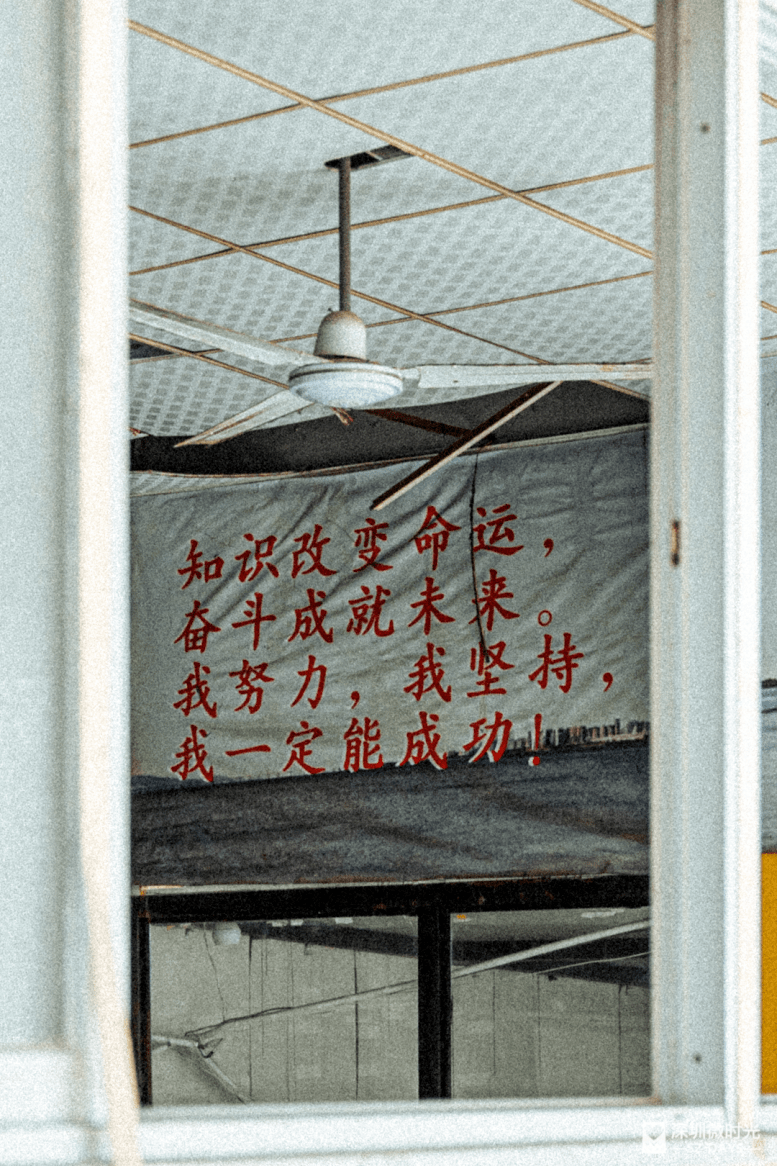 知识改变命运，
奋斗成就未来。
我努力，我坚持，
我一定能成功！
深圳微时光